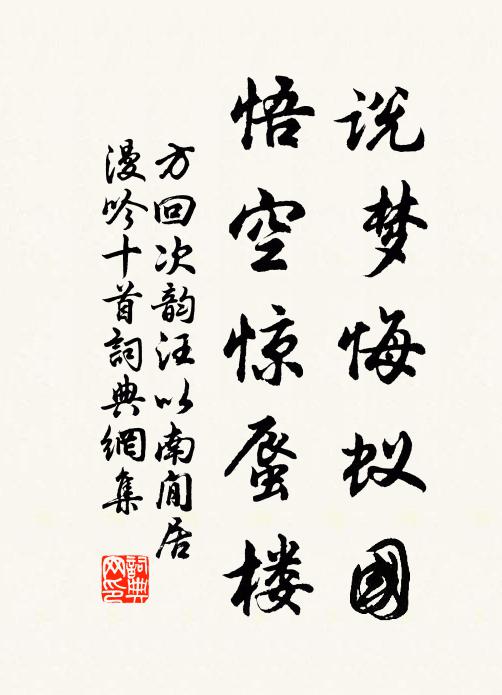 说梦悔蚁國
悟空惊蜃楼
方回次韵汪以南閒居
漫吟十首詞典網集
詞典
网印